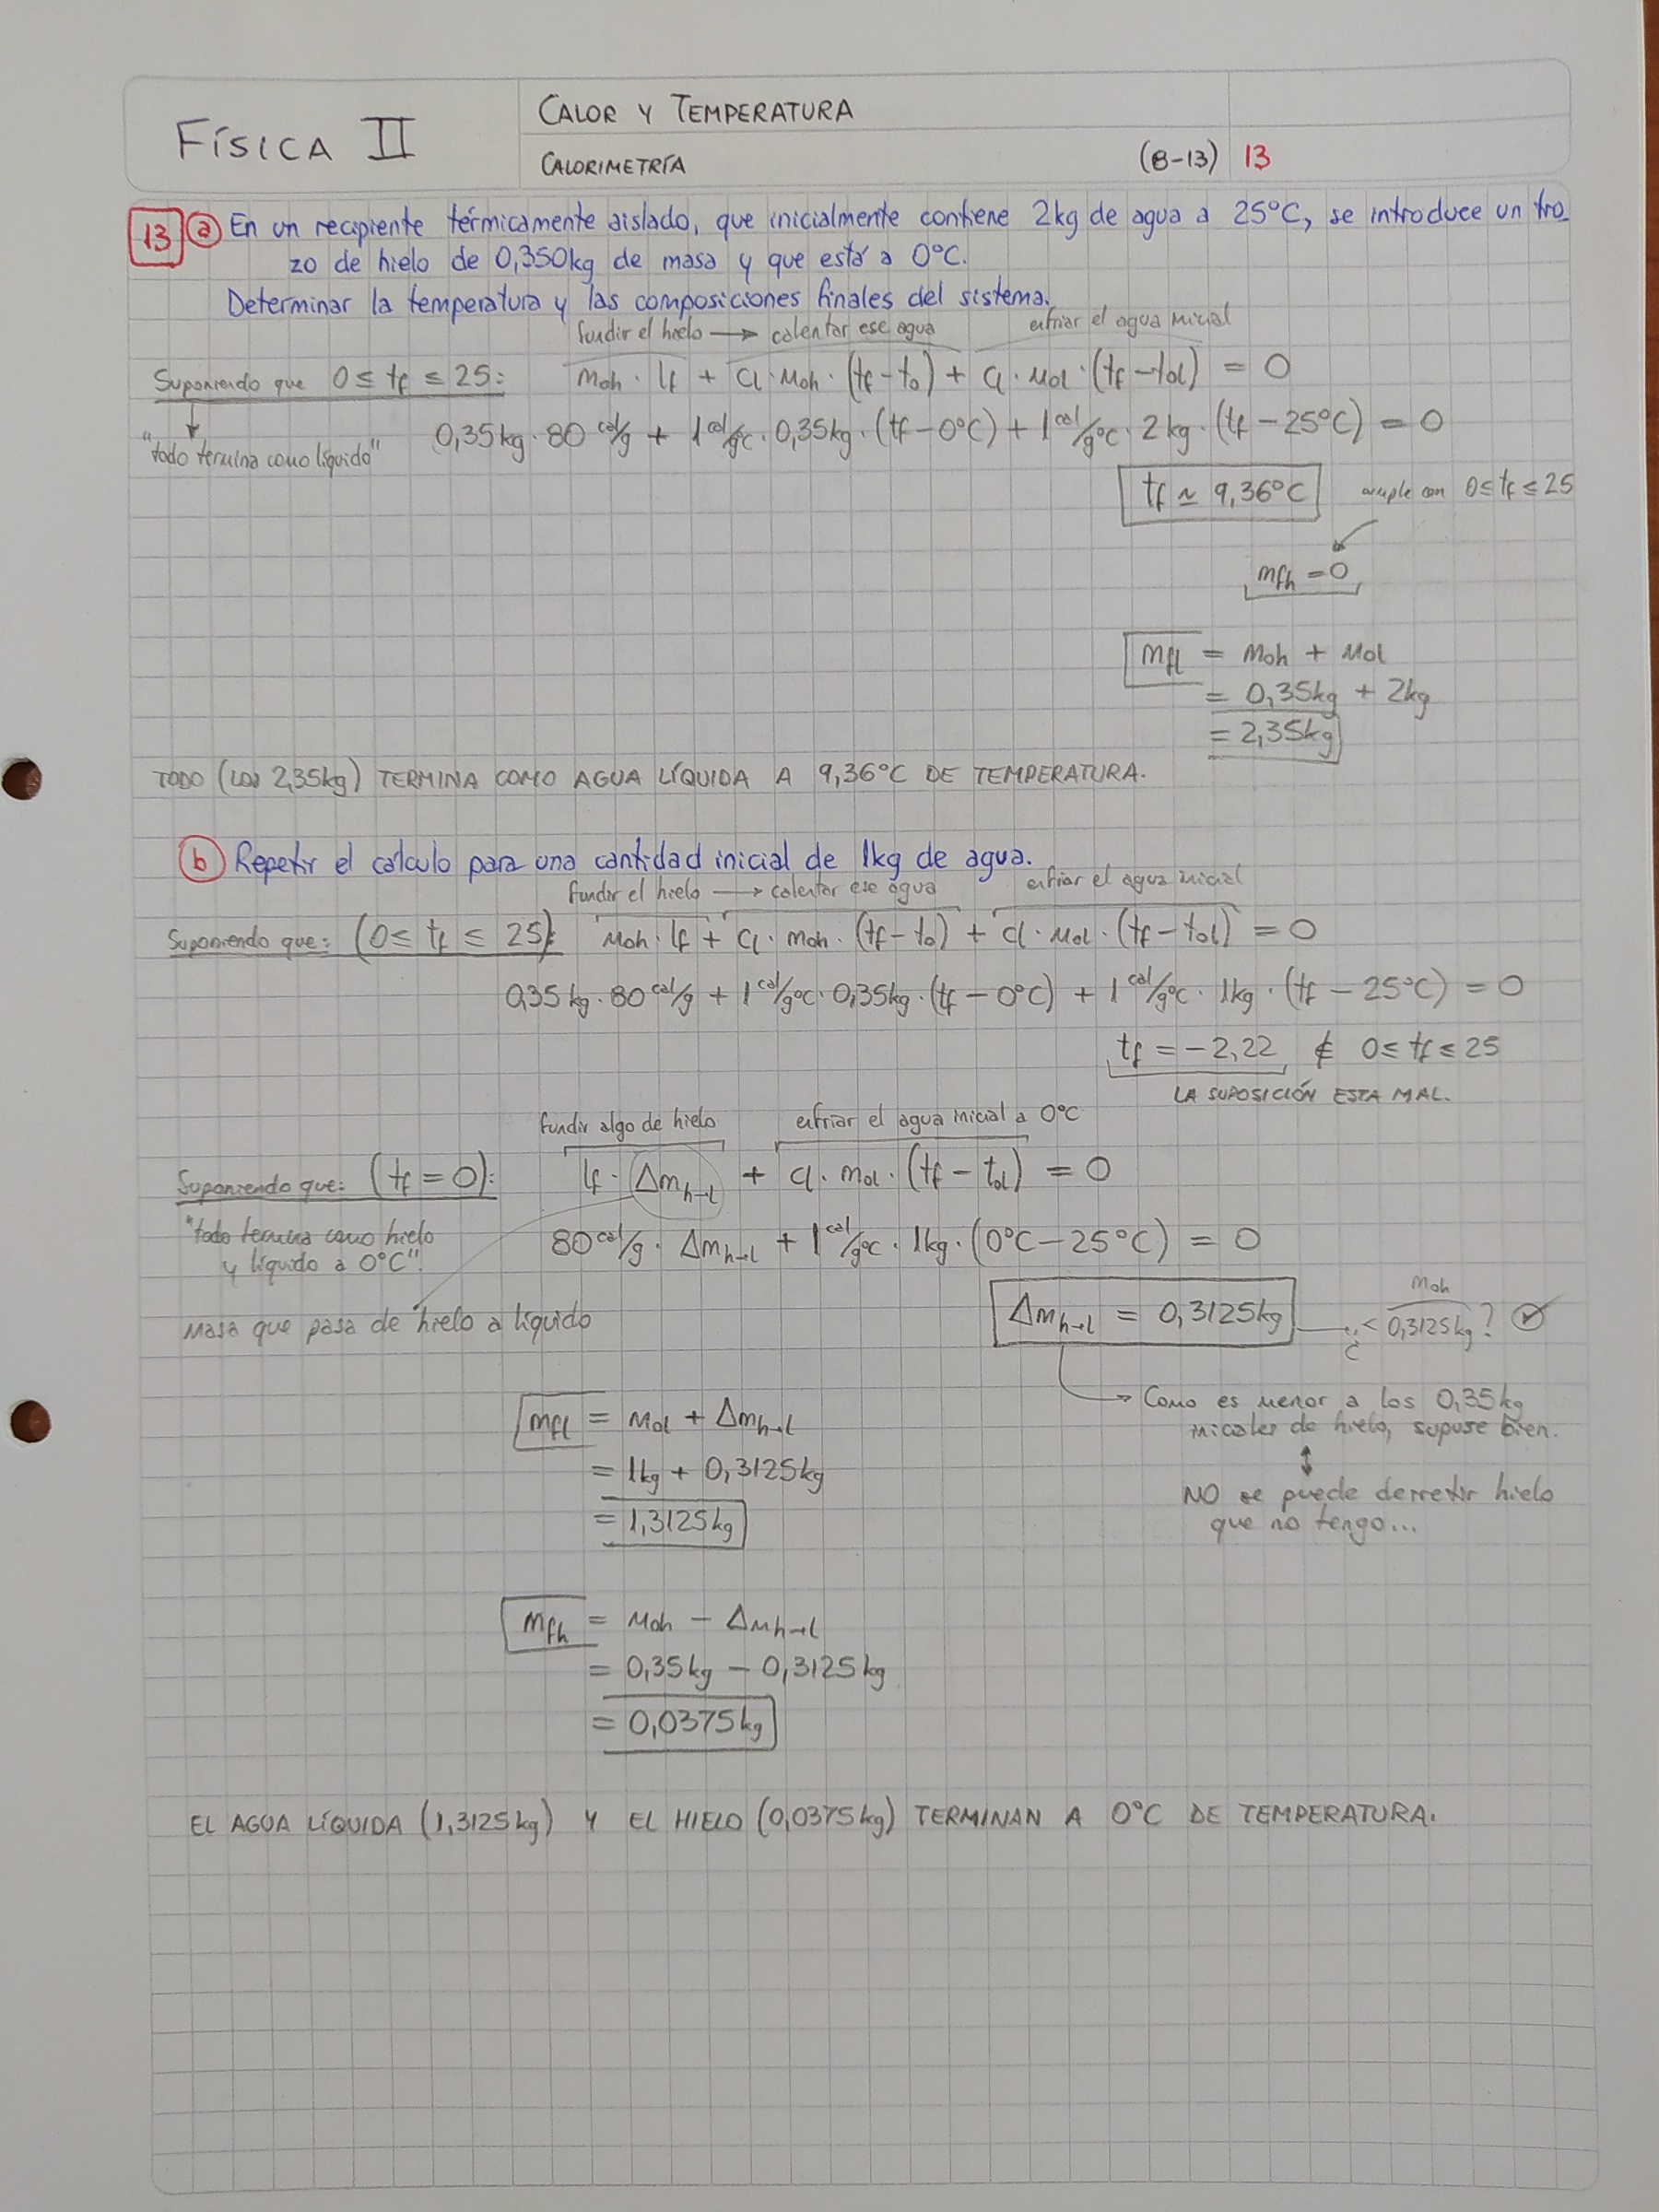 FÍSICA II
CALOR Y TEMPERATURA
CALORIMETRÍA (8-13) 13
13 a En un recipiente térmicamente aislado, que inicialmente contiene 2kg de agua a 25°C, se introduce un tro-
zo de hielo de 0,350kg de masa y que está a 0°C.
Determinar la temperatura y las composiciones finales del sistema.
fundir el hielo → calentar ese agua enfriar el agua inicial
Suponiendo que 0 ≤ tf ≤ 25: moh · lf + cl · moh · (tf - to) + cl · mol · (tf - tol) = 0
"todo termina como líquido" 0,35kg · 80 cal/g + 1 cal/g°C · 0,35kg · (tf - 0°C) + 1 cal/g°C · 2kg · (tf - 25°C) = 0
tf ≃ 9,36°C cumple con 0 ≤ tf ≤ 25
mfh = 0
mfl = moh + mol
= 0,35kg + 2kg
= 2,35kg
TODO (LOS 2,35kg) TERMINA COMO AGUA LÍQUIDA A 9,36°C DE TEMPERATURA.
b Repetir el cálculo para una cantidad inicial de 1kg de agua.
fundir el hielo → calentar ese agua enfriar el agua inicial
Suponiendo que: (0 ≤ tf ≤ 25): moh · lf + cl · moh · (tf - to) + cl · mol · (tf - tol) = 0
0,35kg · 80 cal/g + 1 cal/g°C · 0,35kg · (tf - 0°C) + 1 cal/g°C · 1kg · (tf - 25°C) = 0
tf = -2,22 ∉ 0 ≤ tf ≤ 25
LA SUPOSICIÓN ESTA MAL.
fundir algo de hielo enfriar el agua inicial a 0°C
Suponiendo que: (tf = 0): lf · Δmh→l + cl · mol · (tf - tol) = 0
"todo termina como hielo
y líquido a 0°C" 80 cal/g · Δmh→l + 1 cal/g°C · 1kg · (0°C - 25°C) = 0
Masa que pasa de hielo a líquido
Δmh→l = 0,3125kg → ¿ < 0,3125kg? moh
→ Como es menor a los 0,35kg
iniciales de hielo, supuse bien.
↕
NO se puede derretir hielo
que no tengo...
mfl = mol + Δmh→l
= 1kg + 0,3125kg
= 1,3125kg
mfh = moh - Δmh→l
= 0,35kg - 0,3125kg
= 0,0375kg
EL AGUA LÍQUIDA (1,3125kg) Y EL HIELO (0,0375kg) TERMINAN A 0°C DE TEMPERATURA.